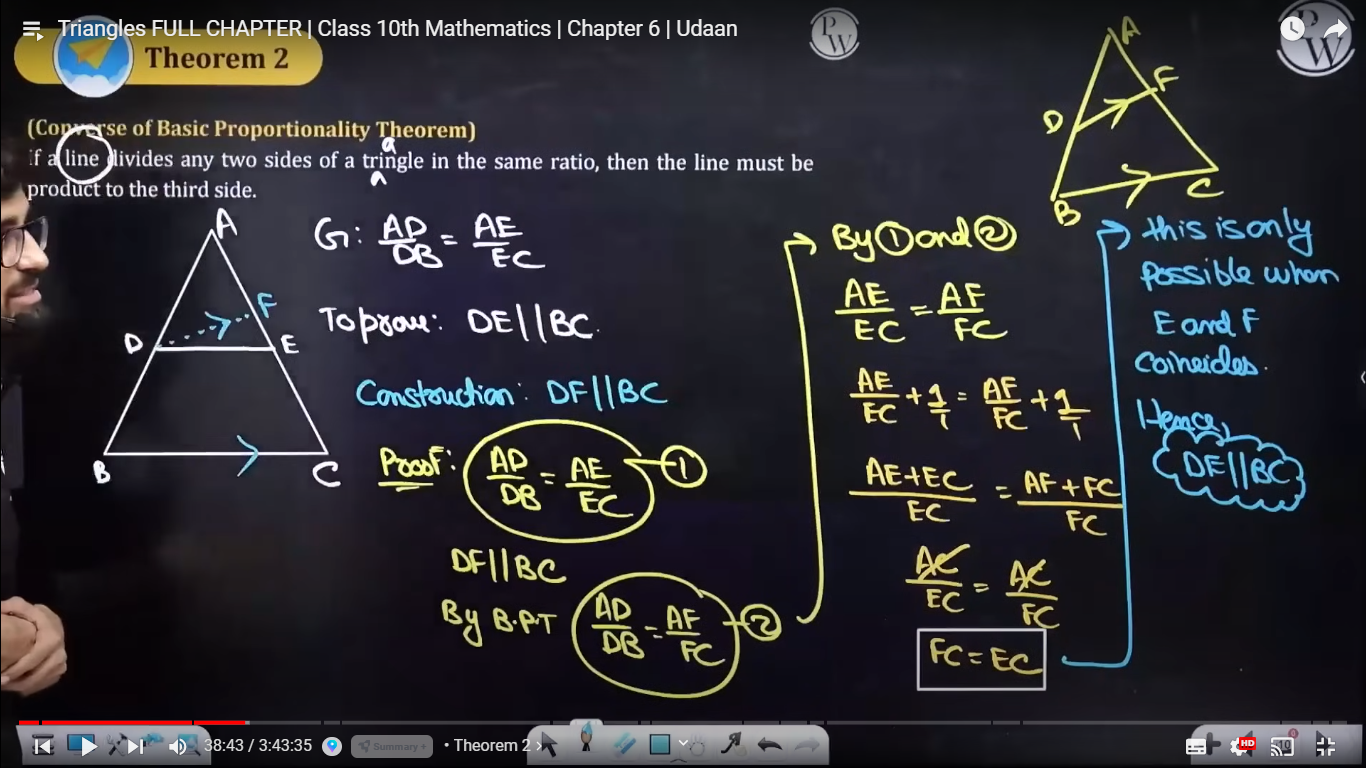 Triangles FULL CHAPTER | Class 10th Mathematics | Chapter 6 | Udaan
PW
PW
Theorem 2
(Converse of Basic Proportionality Theorem)
If a line divides any two sides of a tringle in the same ratio, then the line must be
a
^
product to the third side.
A
D
F
B
C
A
F
D
E
B
C
G: AD/DB = AE/EC
To prove: DE||BC.
Construction: DF||BC
Proof: AD/DB = AE/EC ①
DF||BC
By B.P.T AD/DB = AF/FC ②
By ① and ②
AE/EC = AF/FC
AE/EC + 1/1 = AF/FC + 1/1
AE+EC/EC = AF+FC/FC
AC/EC = AC/FC
FC = EC
this is only
possible when
E and F
Coincides.
Hence,
DE||BC
38:43 / 3:43:35
Summary +
• Theorem 2 ›
HD